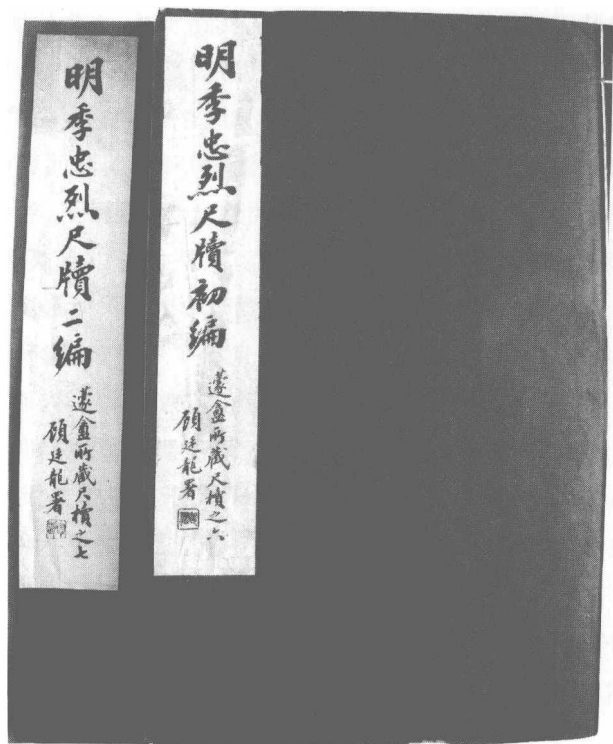 明季忠烈尺牘初編
蘧盦所藏尺牘之六
顧廷龍署
明季忠烈尺牘二編
蘧盦所藏尺牘之七
顧廷龍署